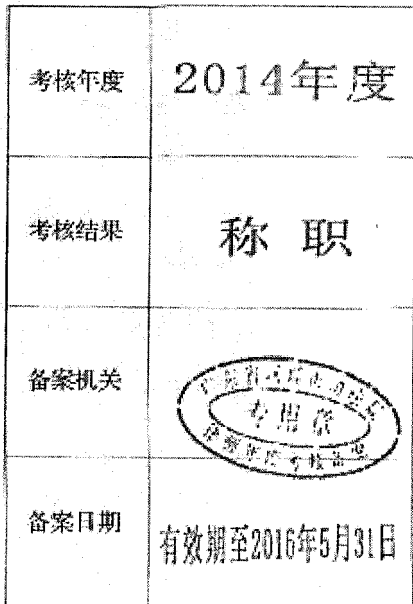 考核年度 2014年度
考核结果 称职
备案机关
专用章
律师年度考核备案
备案日期 有效期至2016年5月31日